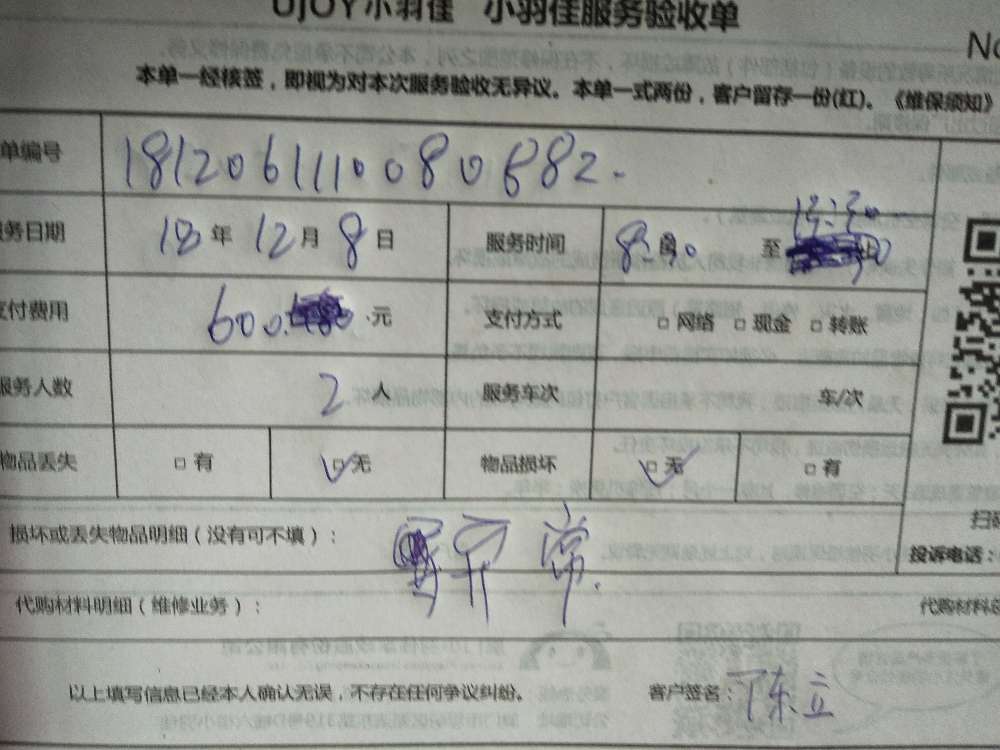 UJOY小羽佳 小羽佳服务验收单
No
本单一经核签，即视为对本次服务验收无异议。本单一式两份，客户留存一份(红)。《维保须知》
单编号 1812061110080682.
服务日期 18 年 12 月 8 日 服务时间 8:30 至 13:30
支付费用 600. 元 支付方式 □ 网络 □ 现金 □ 转账
服务人数 2 人 服务车次 车/次
物品丢失 □ 有 ☑ 无 物品损坏 ☑ 无 □ 有
损坏或丢失物品明细（没有可不填）： 异常.
扫
投诉电话：
代购材料明细（维修业务）： 代购材料总
以上填写信息已经本人确认无误，不存在任何争议纠纷。 客户签名： 陈立